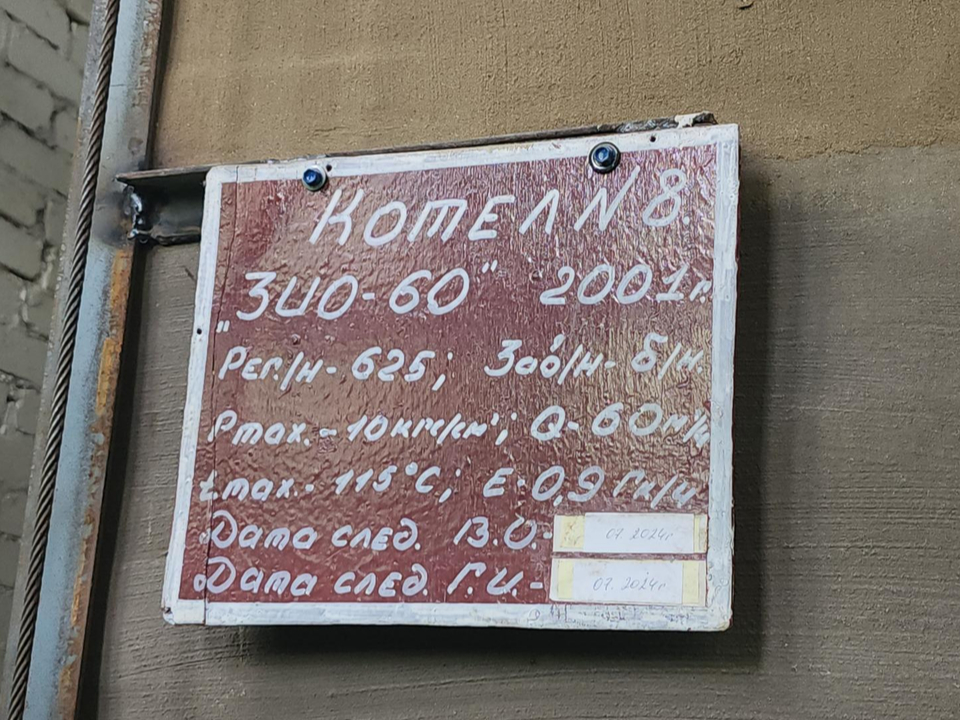 КОТЕЛ N 8.
"ЗИО-60" 2001г.
Рег/н- 625; Зав/н- б/н.
Pmax.- 10кгс/см²; Q- 60м³/ч
tmax.- 115°C; E-0,9 Гк/ч
Дата след. В.О.- 07.2024г
Дата след. Г.И.- 07.2024г